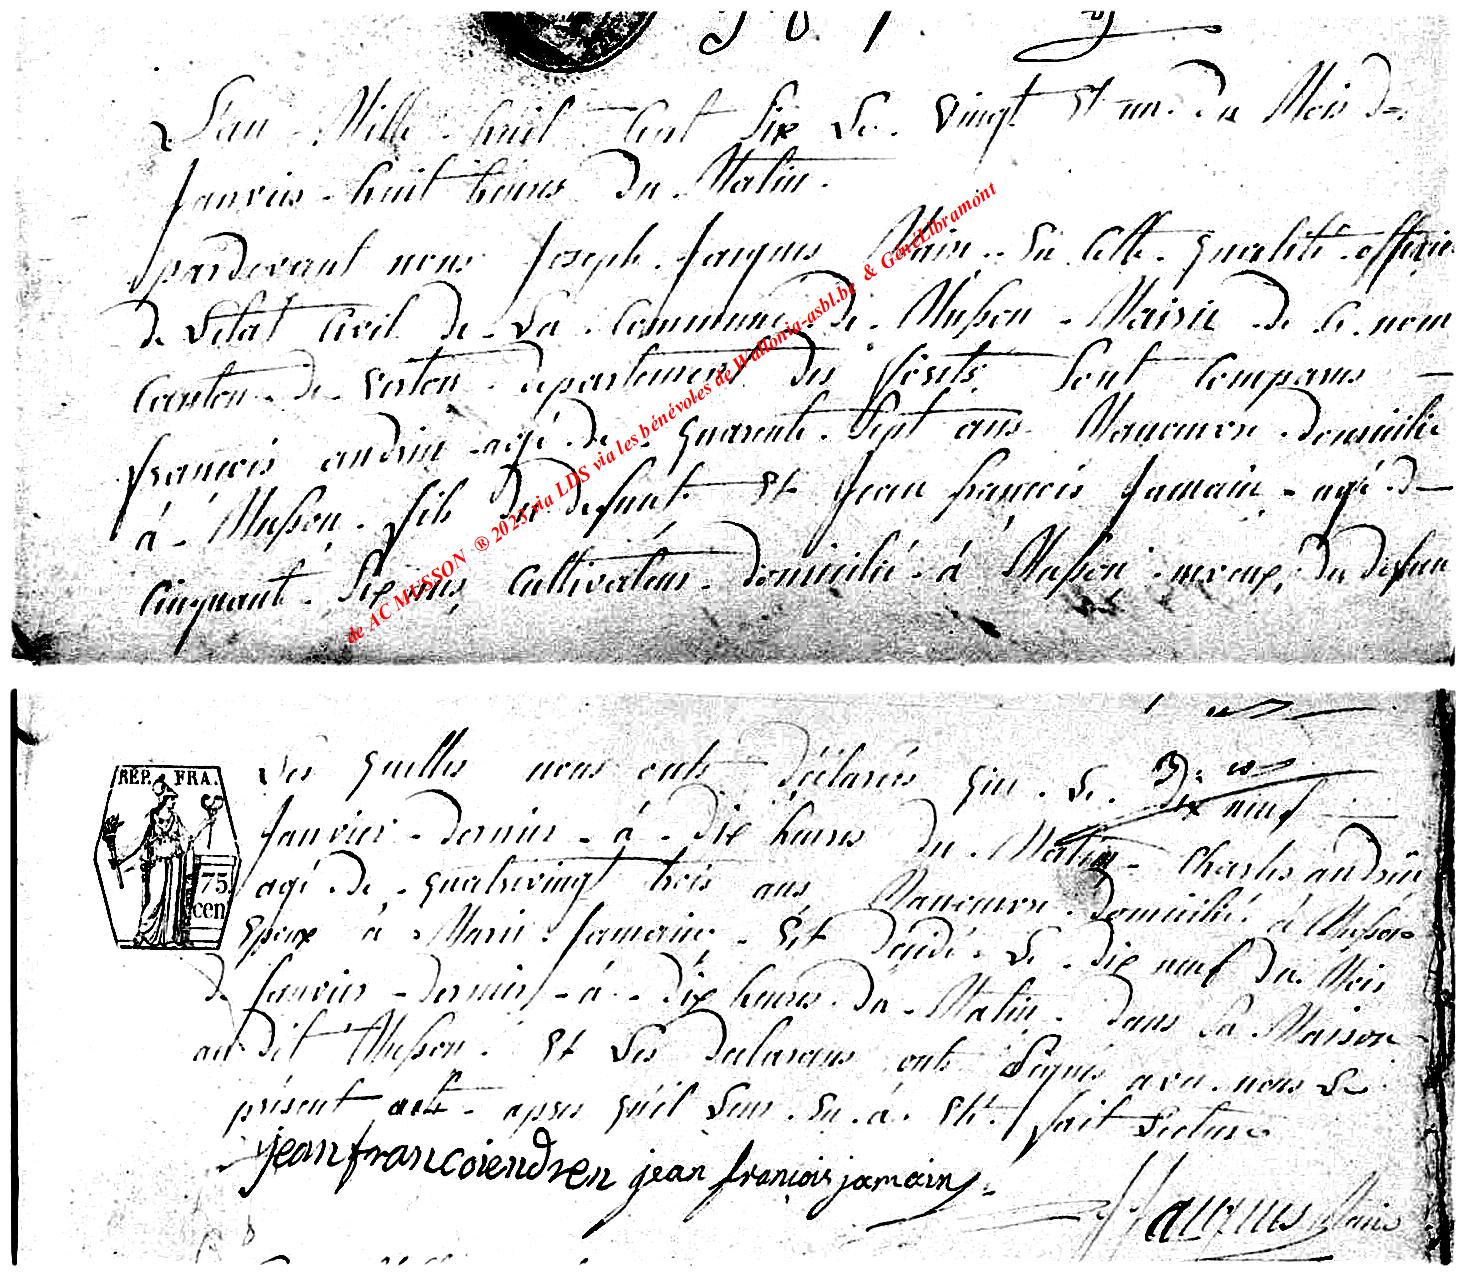 L'an Mille huit Cent Six Le. Vingt Et un. du Mois de
Janvier. huit heures du Matin.
pardevant nous Joseph. Jacques Maire. En Cette. qualité. officier
de L'etat Civil de. La. Commune. de. Musson. Mairie. de Ce. nom
Canton. de. Virton. departement des forêts Sont Comparus —
françois andrin. agé. de. quarente. Sept ans. Manœuvre. domicilié
à. Musson. fils du defunt. Et Jean françois Jamain. agé. de
Cinquante. Six ans, Cultivateur. domicilié. à Musson. neveux, du defun
de AC MUSSON ® 2023 via LDS via les bénévoles de Wallonia-asbl.be & GénéLibramont
REP. FRA.
75
cen
Les quelles nous onts déclarés que. Le. Dix neuf
Janvier. dernier. à. dix heures du. Matin. Charles andrin
agé. de. quatrevingt trois ans Manœuvre. domicilié. à Musson
Epoux à. Marie. Jamain, Est decidé. Le. dix neuf du. Mois
de Janvier. dernier. à. dix heures. du. Matin. dans Sa. Maison
au dit Musson. Et Les declarans onts Signés avec. nous Le
présent acte. apres qu'il Leur. En. à. Eté. fait Lecture
jean francoiendren jean françois jamain
J. Jacques Maire